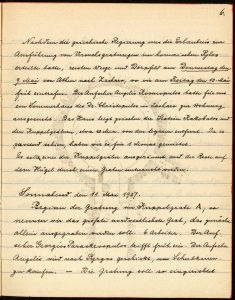 6.
Nachdem die griechische Regierung uns die Erlaubnis zur
Ausführung von Versuchsgrabungen im homerischen Pylos
erteilt hatte, reisten Weege und Dörpfeld am Donnerstag den
9. Mai von Athen nach Zacharo, wo wir am Freitag den 10. Mai
früh eintrafen. Der Aufseher Angelis Kosmopulos hatte für uns
ein Sommerhaus des Dr. Christopulos in Zacharo zur Wohnung
ausgesucht. Das Haus liegt zwischen der Station Kakovatos und
den Kuppelgräbern, etwa
passend schien, haben wir es für
Es soll einer der Kuppelgräber ausgeräumt und die Reste auf
dem Hügel durch einen Graben untersucht werden.
Sonnabend den 11. Mai 1907.
Beginn der Grabung im Kuppelgrabe A, so
nennen wir das größte nordwestlichste Grab, das zunächst
allein ausgegraben werden soll. 6 Arbeiter. Der Auf-
seher Georgios Paraskevopulos trifft früh ein. Der Aufseher
Angelis wird nach Pyrgos geschickt, um Schubkarren
zu kaufen. — Die Grabung soll so eingerichtet